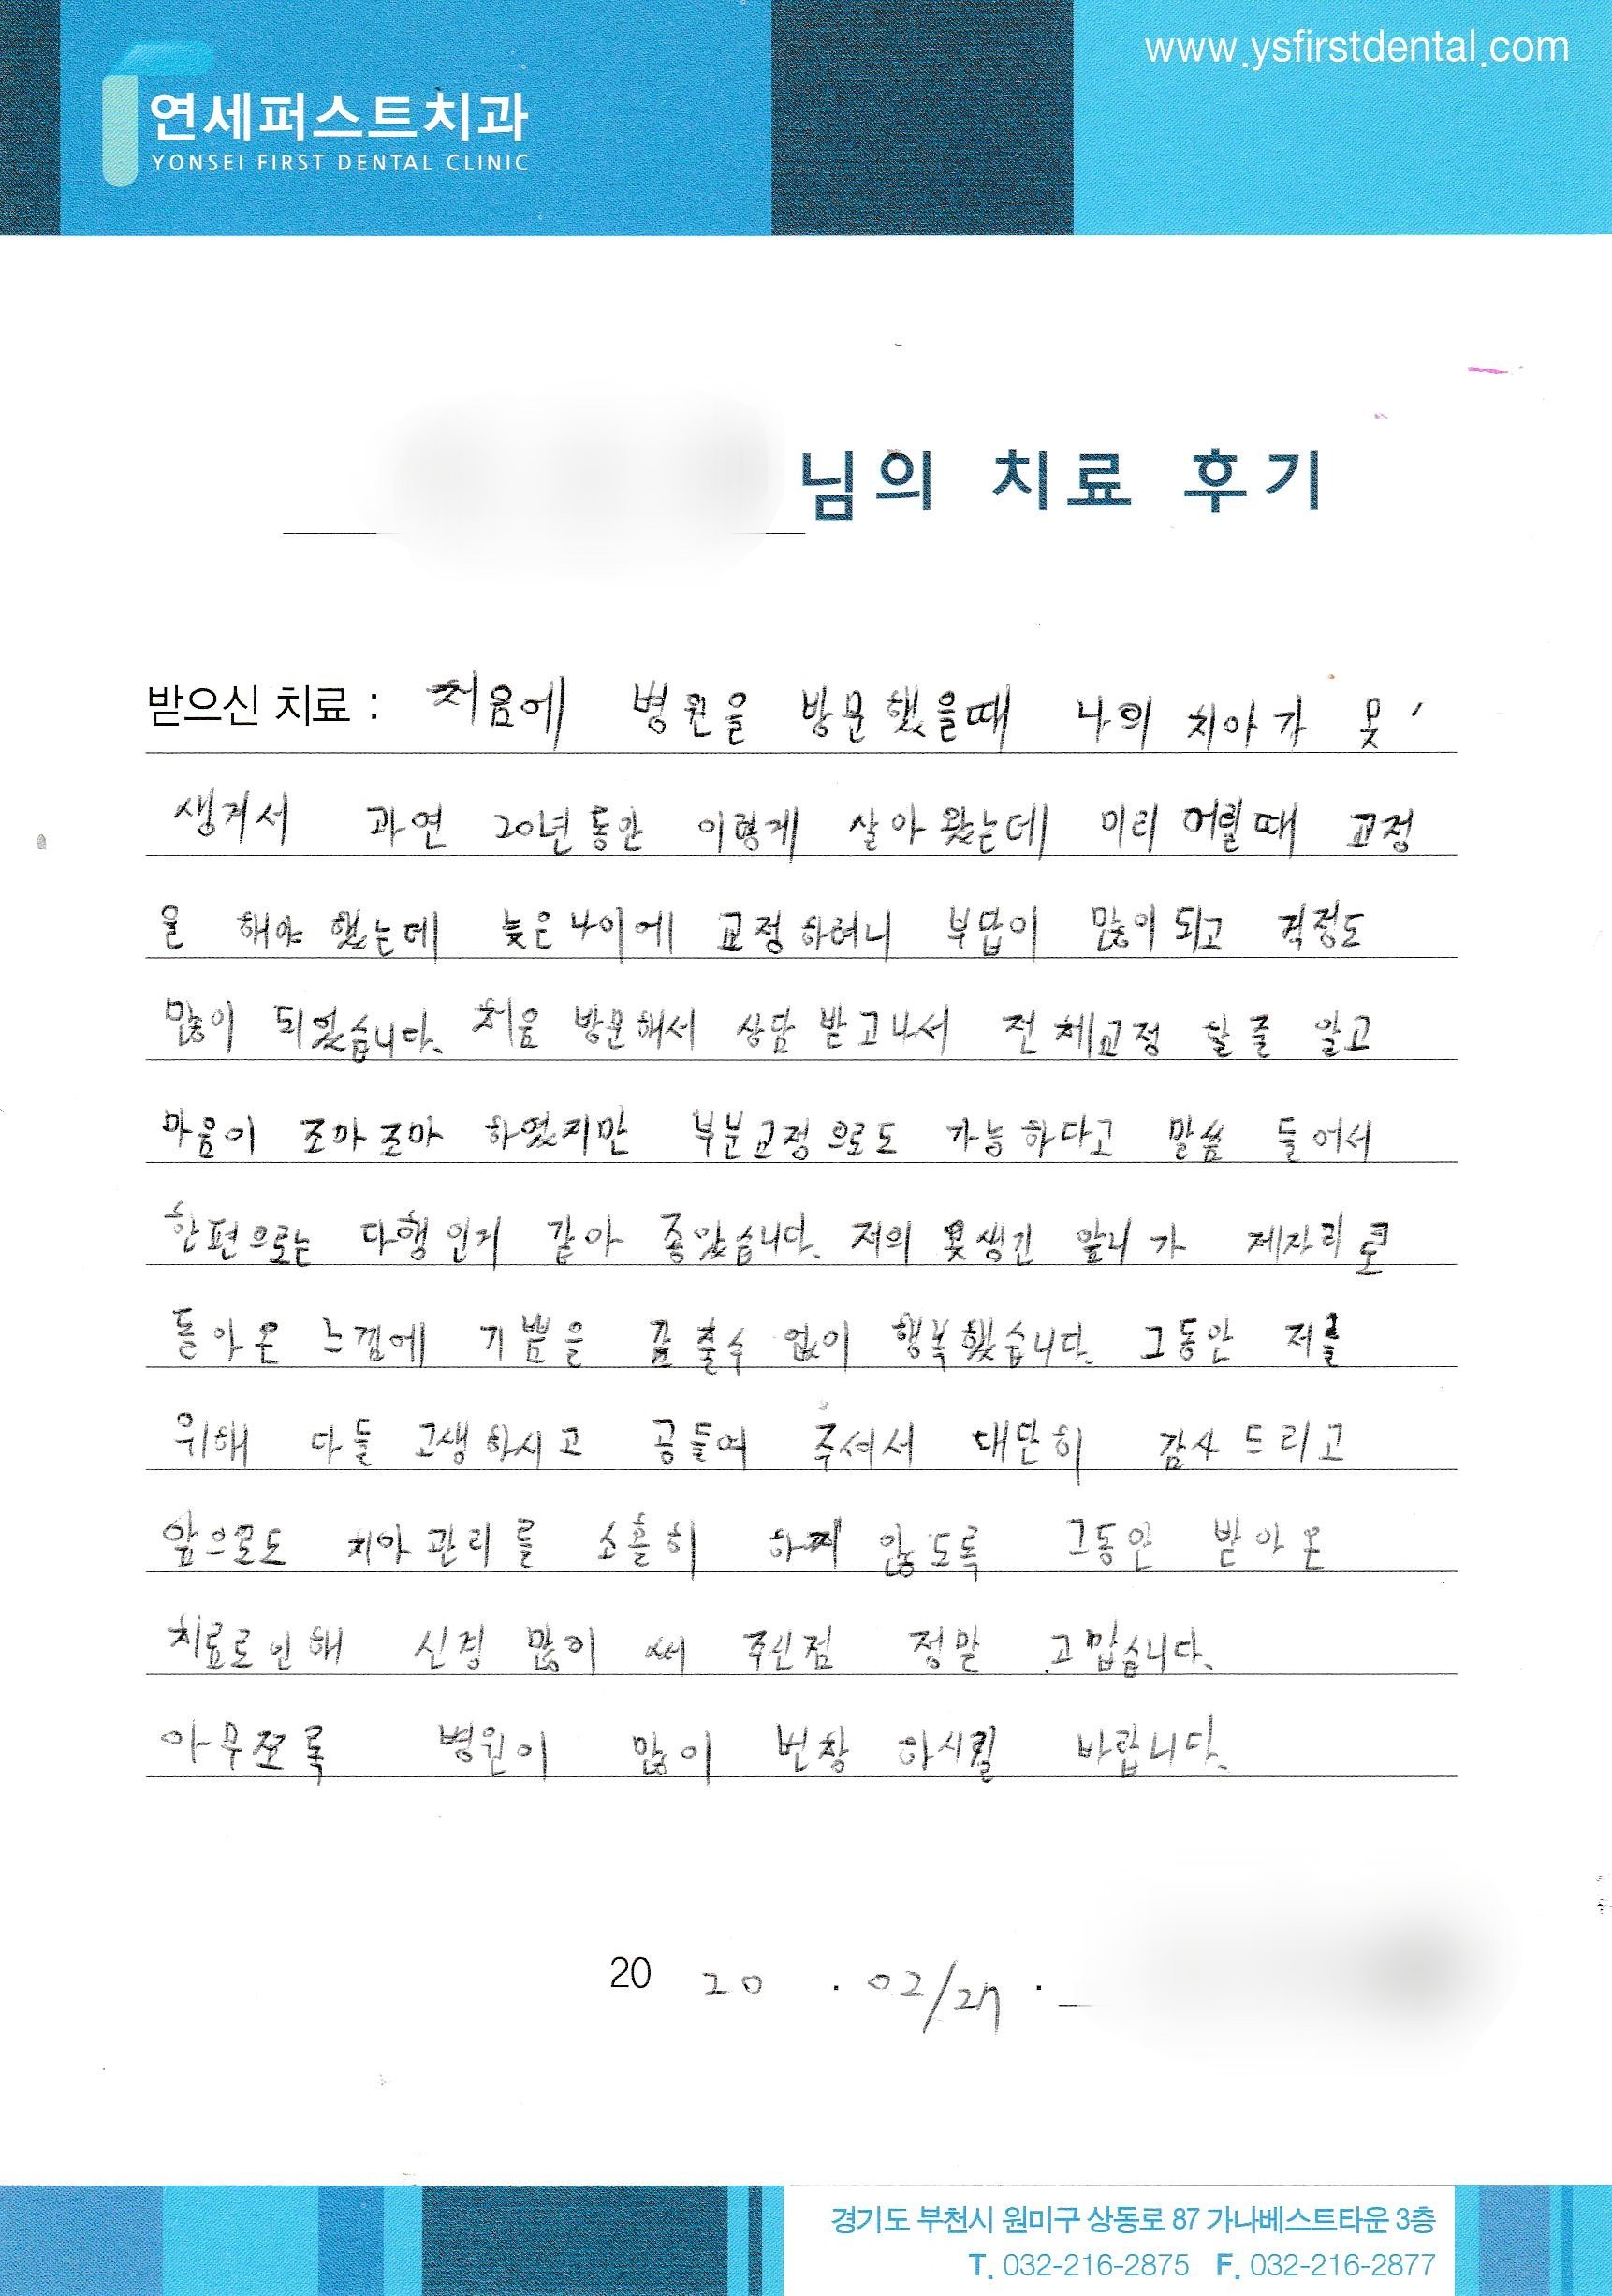 www.ysfirstdental.com
연세퍼스트치과
YONSEI FIRST DENTAL CLINIC
님의 치료 후기
받으신 치료 : 처음에 병원을 방문했을때 나의 치아가 못
생겨서 과연 20년동안 이렇게 살아왔는데 미리 어릴때 교정
을 해야 했는데 늦은나이에 교정하려니 부담이 많이되고 걱정도
많이 되었습니다. 처음 방문해서 상담 받고나서 전체교정 할줄 알고
마음이 조마조마 하였지만 부분교정으로도 가능하다고 말씀 들어서
한편으로는 다행인거 같아 좋았습니다. 저의 못생긴 앞니가 제자리로
돌아온 느낌에 기쁨을 감출수 없이 행복했습니다. 그동안 저를
위해 다들 고생하시고 공들여 주셔서 대단히 감사드리고
앞으로도 치아관리를 소홀히 하지 않도록 그동안 받아온
치료로인해 신경 많이 써 주신점 정말 고맙습니다.
아무쪼록 병원이 많이 번창 하시길 바랍니다.
20 20 . 02/27 .
경기도 부천시 원미구 상동로 87 가나베스트타운 3층
T. 032-216-2875 F. 032-216-2877